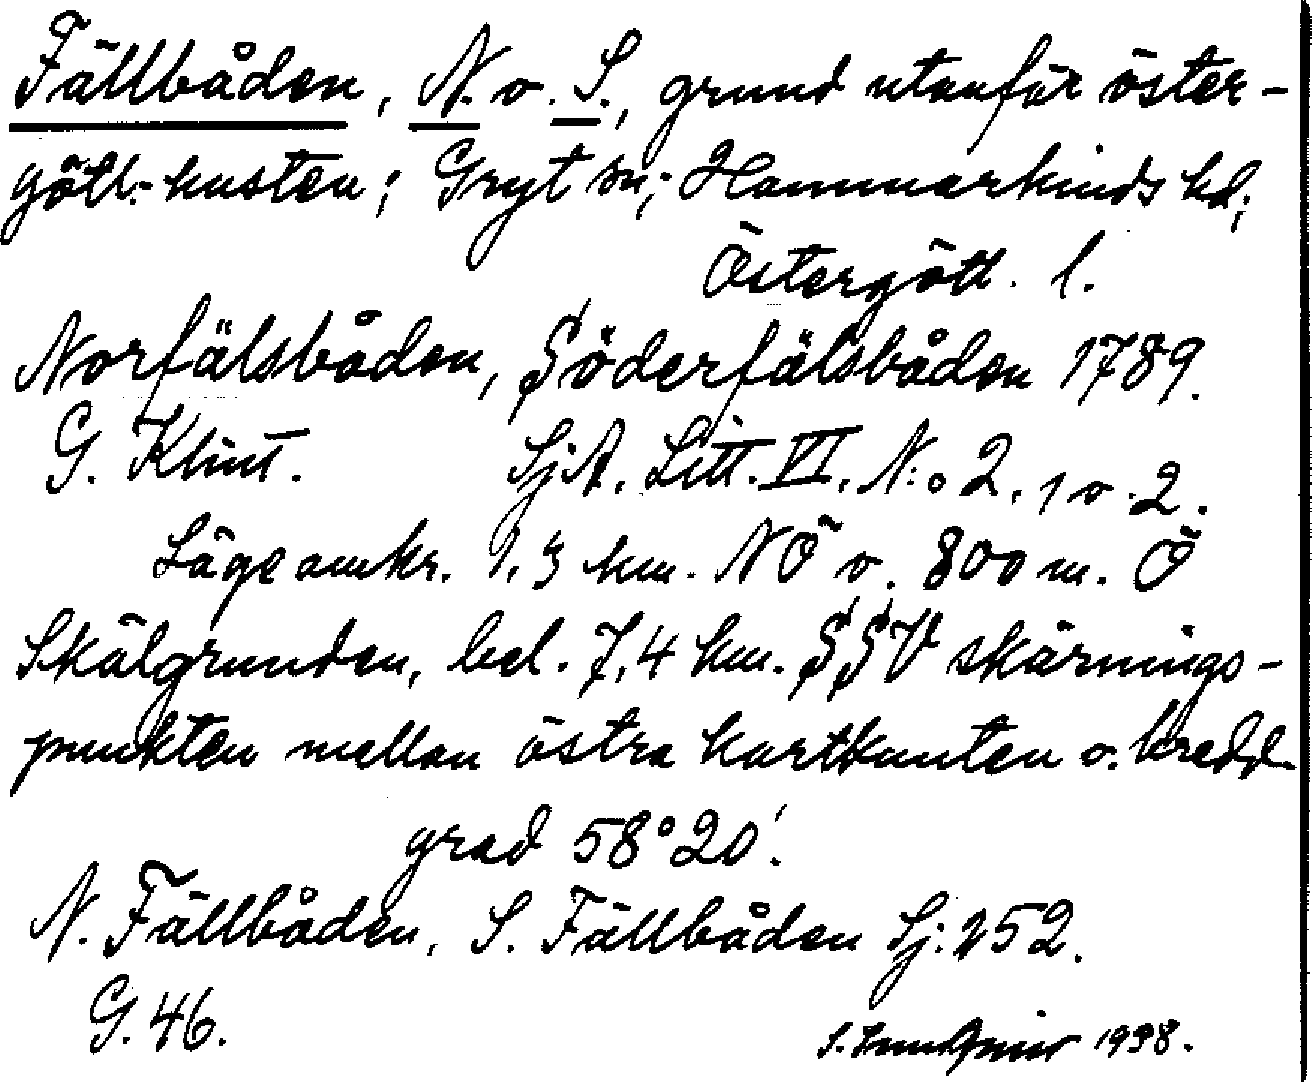 Fällbåden, N. o. S., grund utanför öster-
götl.-kusten; Gryt sn; Hammarkinds hd;
Östergötl. l.
Norfälsbåden, Söderfälsbåden 1789.
G. Klint. SjA. Litt. VI. N:o 2. 1 o. 2.
Läge omkr. 1,3 km. NÖ o. 800 m. Ö
Skälgrunden, bel. 7,4 km. SSV skärnings-
punkten mellan östra kartkanten o. bredd-
grad 58°20'.
N. Fällbåden, S. Fällbåden Sj. 252.
G. 46.
S. 1938.